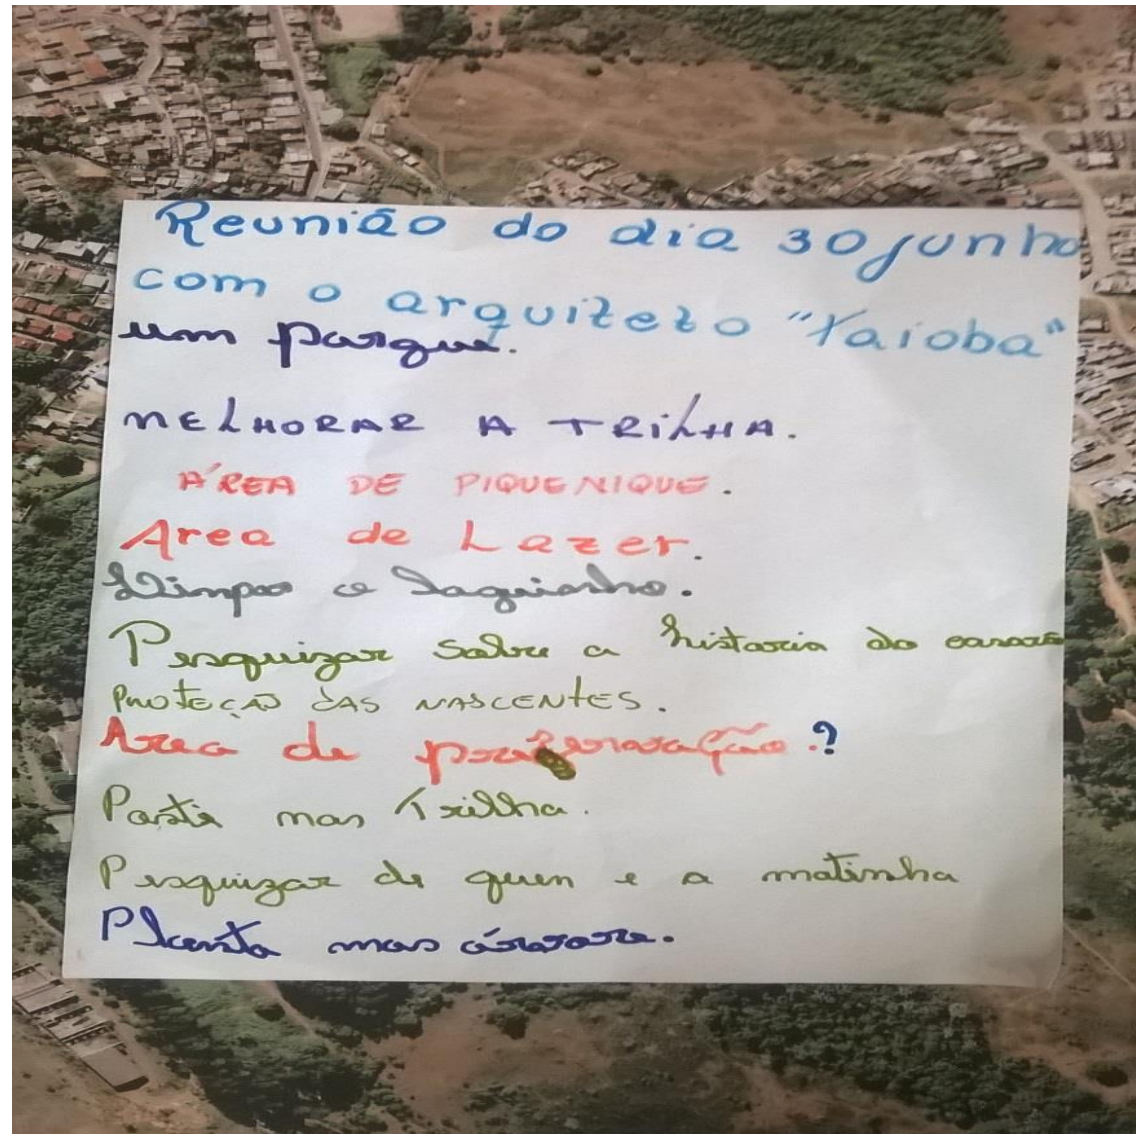 Reunião do dia 30 junho
com o arquiteto "Taioba"
um parque.
MELHORAR A TRILHA.
ÁREA DE PIQUENIQUE.
Area de Lazer.
Limpa o laguinho.
Pesquizar sobre a histaria do
PROTEÇAO DAS NASCENTES.
Area de ?
mas Trilha.
Pesquizar de quen e a matinha
Planta mas